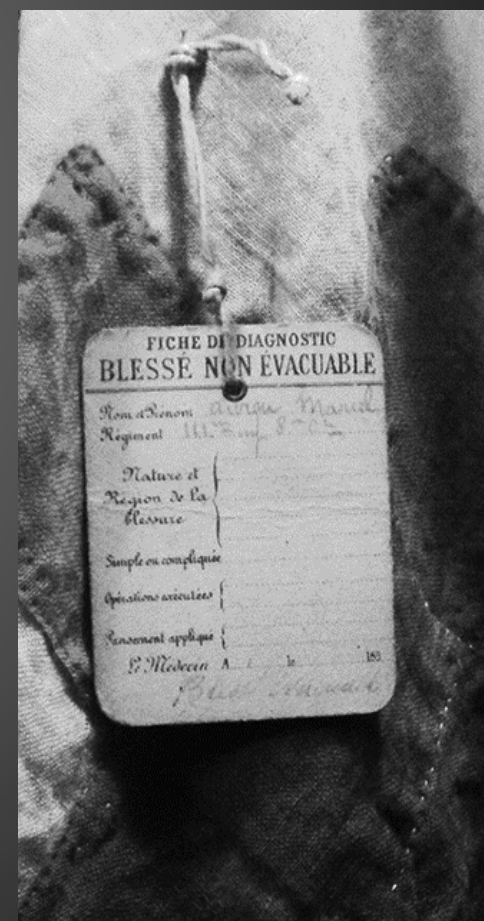 FICHE DE DIAGNOSTIC
BLESSÉ NON ÉVACUABLE
Nom et Prénom
Régiment 111.e 8
Nature et
Région de la
blessure
Simple ou compliquée
Opérations exécutées
Pansement appliqué
Le Médecin A le 189